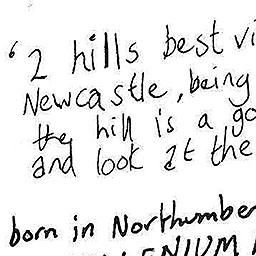 ‘2 hills best vi
Newcastle, being
the hill is a go
and look at the
born in Northumber
LENIUM